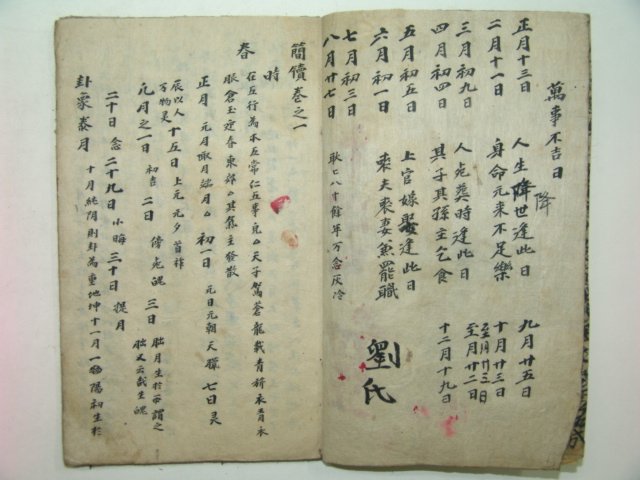 萬事不吉日
正月十三日 人生降世逢此日 九月廿五日
降
二月十一日 身命元來不足樂 十月廿三日
三月初九日 人克葬時逢此日 至月廿三日
四月初四日 其子其孫主乞食 至月廿二日
五月初五日 上官嫁娶逢此日 十二月十九日
六月初一日 喪夫喪妻魚罷職
七月初三日
八月廿七日 耿七八十餘年万念灰冷
劉氏
簡儥卷之一
春
時 在五行為木五常仁五事
天子駕蒼龍載青旂衣青衣
服倉玉迎春東郊 其氣主發散
正月 元月陬月端月 初一日 元日元朝天臘 七日灵
辰以人万物灵 十五日 上元元夕首祚
元月之一日 初吉 二日 傍死魄 三日 朏月生於西謂之朏又云哉生魄
二十日 念 二十九日 小晦 三十日 提月
卦象泰月 十月純阴則卦為重地坤十一月一陽初生於